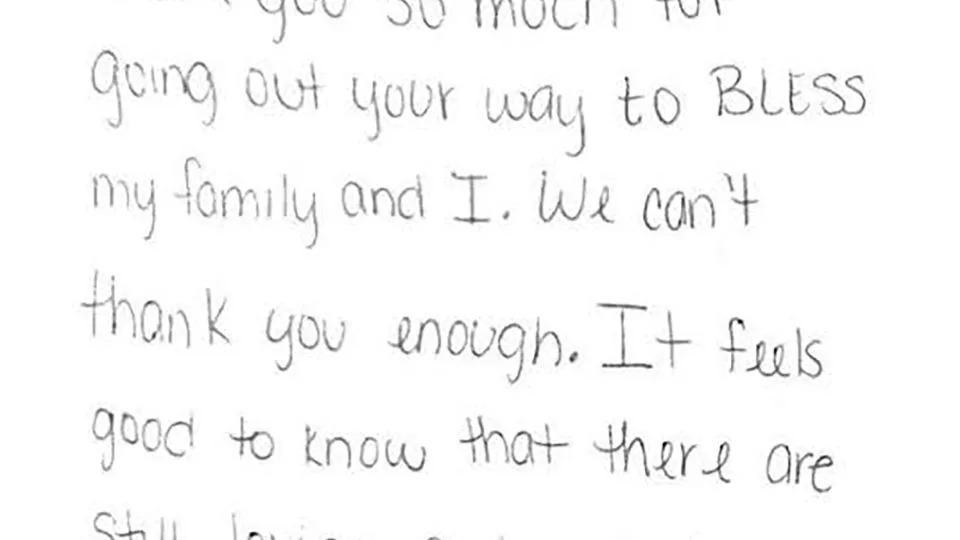 you so much for
going out your way to BLESS
my family and I. We can't
thank you enough. It feels
good to know that there are
still